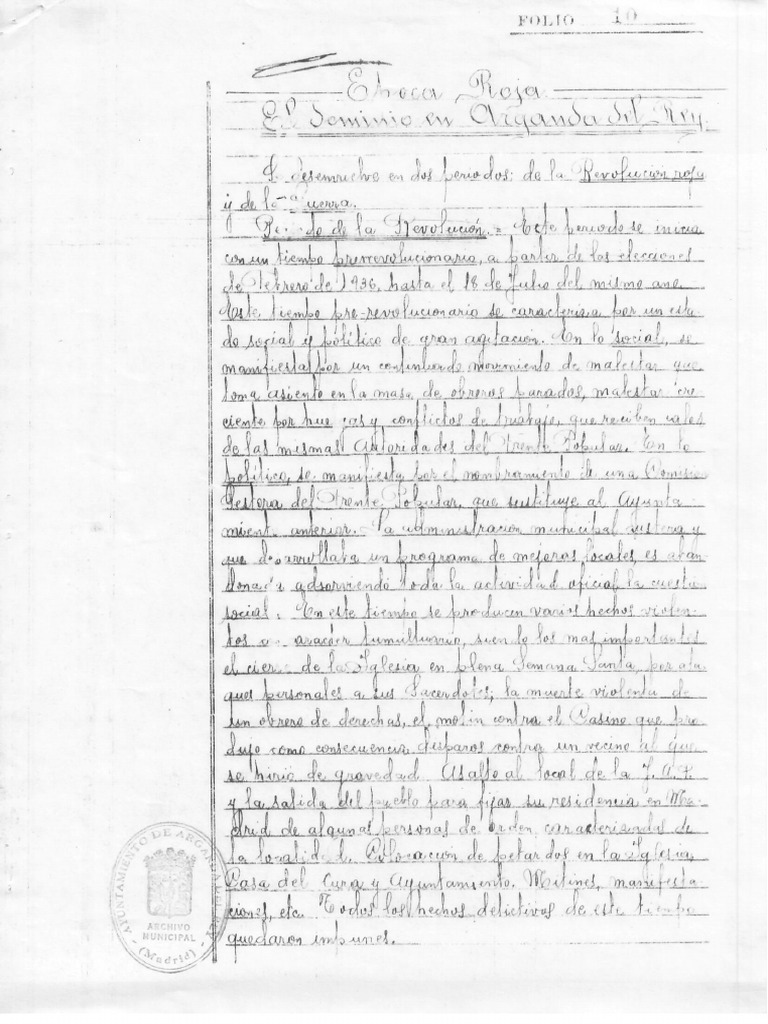 FOLIO 10
Epoca Roja
El dominio en Arganda del Rey.
Se desenvuelve en dos periodos: de la Revolución roja
y de la Guerra.
Periodo de la Revolución. = Este periodo se inicia
con un tiempo prerrevolucionario, a partir de las elecciones
de Febrero de 1936, hasta el 18 de Julio del mismo año.
Este tiempo pre-revolucionario se caracteriza por un esta-
do social y político de gran agitación. En lo social, se
manifiesta por un continuado movimiento de malestar que
toma asiento en la masa de obreros parados, malestar cre-
ciente por huelgas y conflictos de trabajo, que reciben
de las mismas Autoridades del Frente Popular. En lo
político, se manifiesta por el nombramiento de una Comision
Gestora del Frente Popular, que sustituye al Ayunta
miento anterior. La administración municipal austera y
que desarrollaba un programa de mejoras locales, es aban
donada adsorviendo toda la actividad oficial la cuestion
social. En este tiempo se producen varios hechos violen-
tos de caracter tumultuario, siendo los mas importantes
el cierre de la Iglesia en plena Semana Santa, por ata
ques personales a sus Sacerdotes; la muerte violenta de
un obrero de derechas, el motin contra el Casino que pro
dujo como consecuencia disparos contra un vecino al que
se hirió de gravedad. Asalto al local de la J.A.P.
y la salida del pueblo para fijar su residencia en Ma-
drid de algunas personas de orden caracterizadas de
la localidad. Colocación de petardos en la Iglesia,
Casa del Cura y Ayuntamiento. Mitines, manifesta-
ciones, etc. Todos los hechos delictivos de este tiempo
quedaron impunes.
AYUNTAMIENTO DE ARGANDA DEL REY
ARCHIVO
MUNICIPAL
(Madrid)